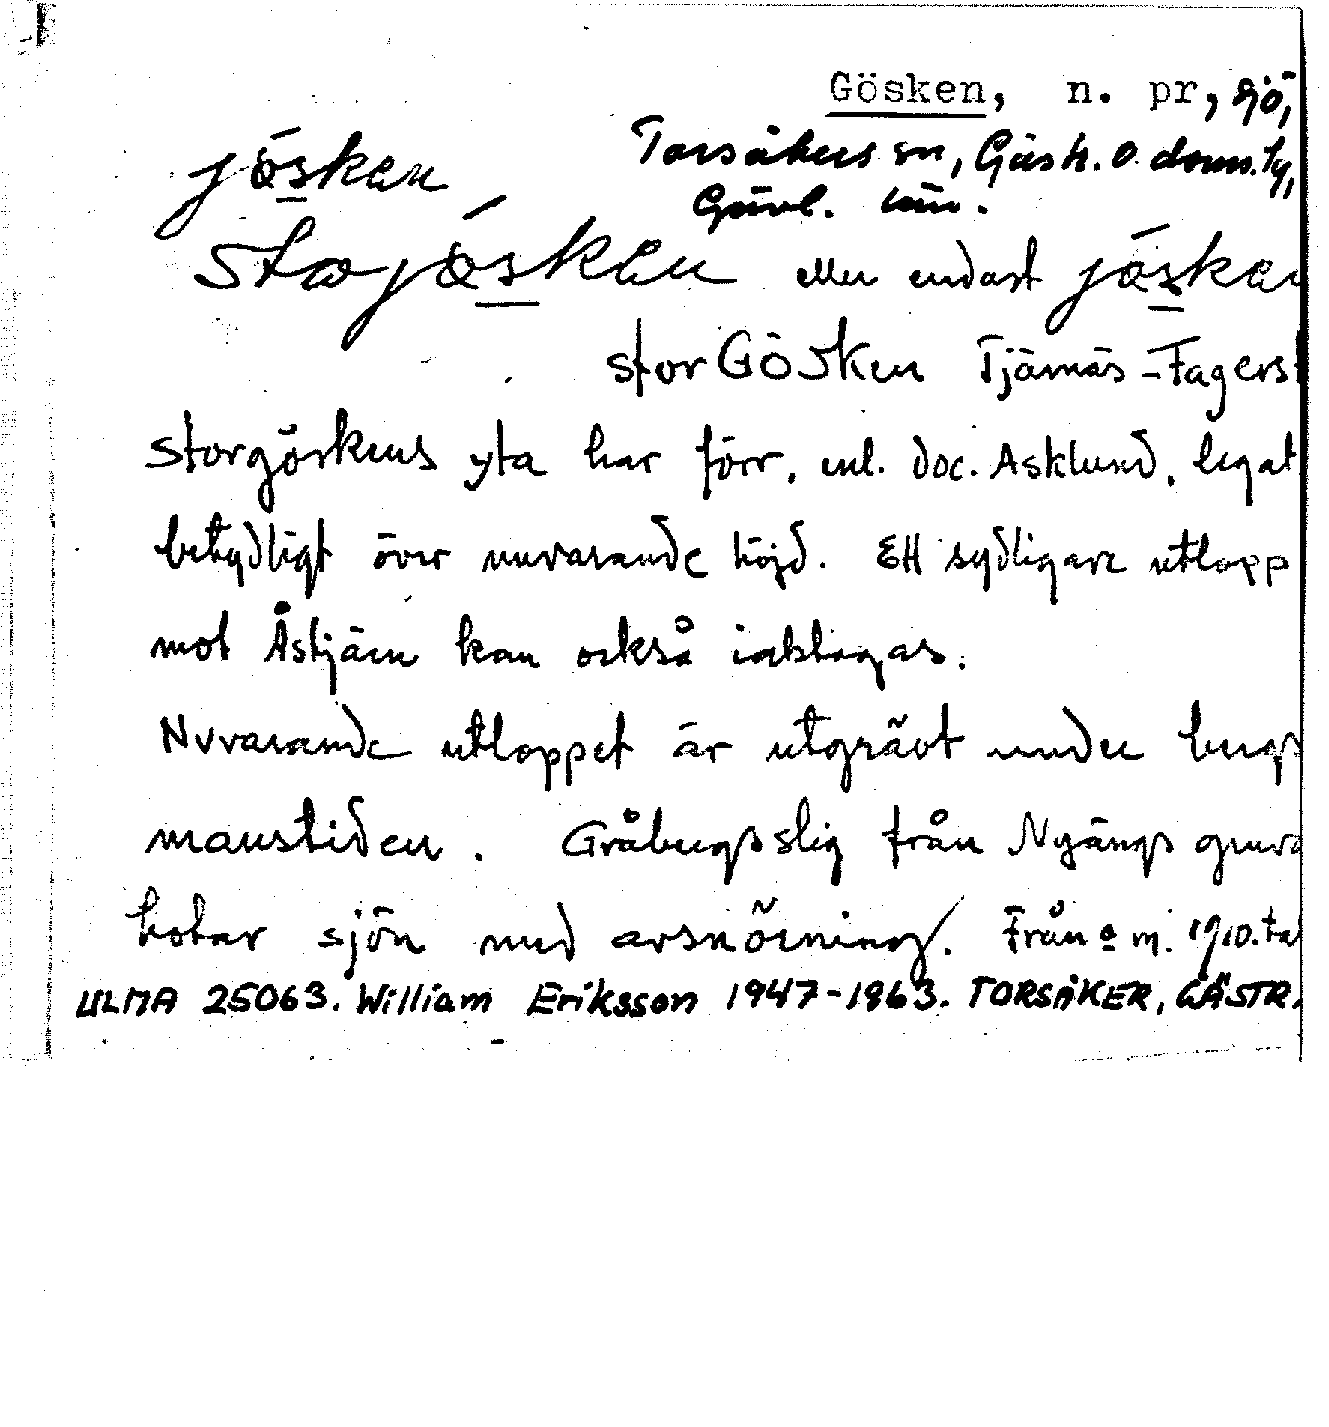 Gösken, n. pr, sjö,
jösken Torsåkers sn, Gästr. o. doms. ty,
Gävl. län.
Stωjösken eller endast jösken
stor Gösken Tjärnäs - Fagerst
storgöskens yta har förr, enl. doc. Asklund, legat
betydligt över nuvarande höjd. Ett sydligare utlopp
mot Åstjärn kan också iakttagas.
Nuvarande utloppet är utgrävt under bergs
manstiden. Gråbergsslig från Nyängs gruva
hotar sjön med avsnörning. Från o m. 1910. tal
ULMA 25063. William Eriksson 1947-1963. TORSÅKER, GÄSTR.